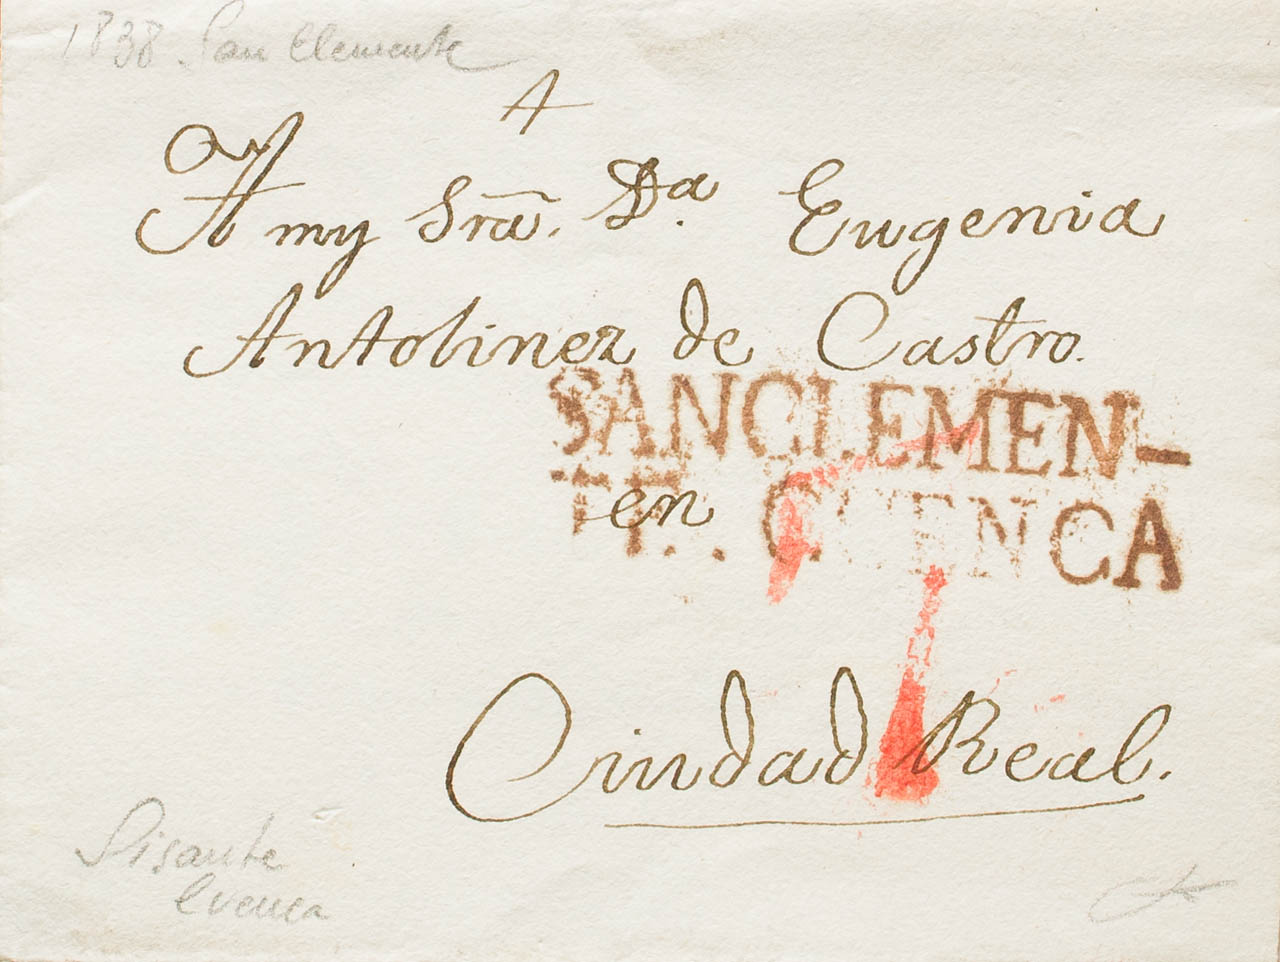 1838 San Clemente
A my Sra. Da. Eugenia
Antolinez de Castro.
SANCLEMEN-
TE. CUENCA
en
Ciudad Real.
Sisante
Cuenca